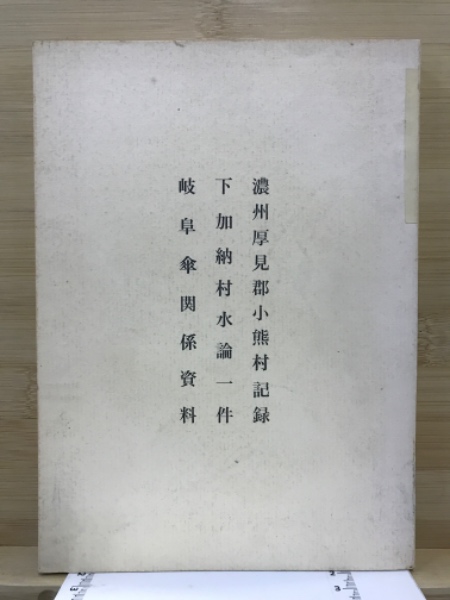 濃州厚見郡小熊村記録
下加納村水論一件
岐阜傘関係資料